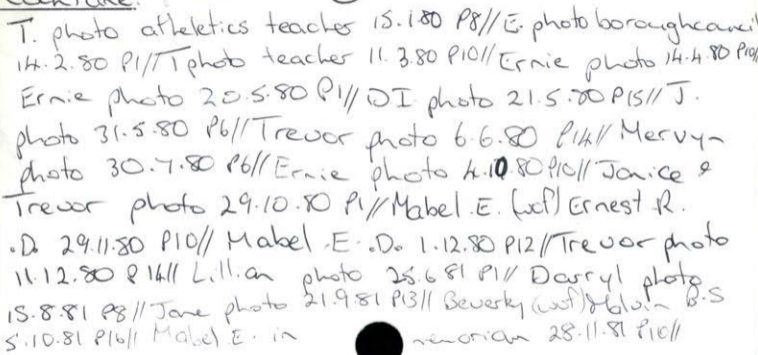 T. photo atheletics teacher 15.1.80 P8// E. photo borough council
14.2.80 P1// T photo teacher 11.3.80 P10// Ernie photo 14.4.80 P10//
Ernie photo 20.5.80 P1// DI photo 21.5.80 P15// J.
photo 31.5.80 P6// Trevor photo 6.6.80 P14// Mervyn
photo 30.7.80 P6// Ernie photo 4.10.80 P10// Janice &
Trevor photo 29.10.80 P1// Mabel.E. (wf) Ernest R.
.D. 29.11.80 P10// Mabel .E. .D. 1.12.80 P12// Trevor photo
11.12.80 P14// Lillian photo 25.6.81 P1// Darryl photo
15.8.81 P8// Jane photo 21.9.81 P13// Beverly (wf) Melvin B.S
5.10.81 P16// Mabel E. in memorian 28.11.81 P10//